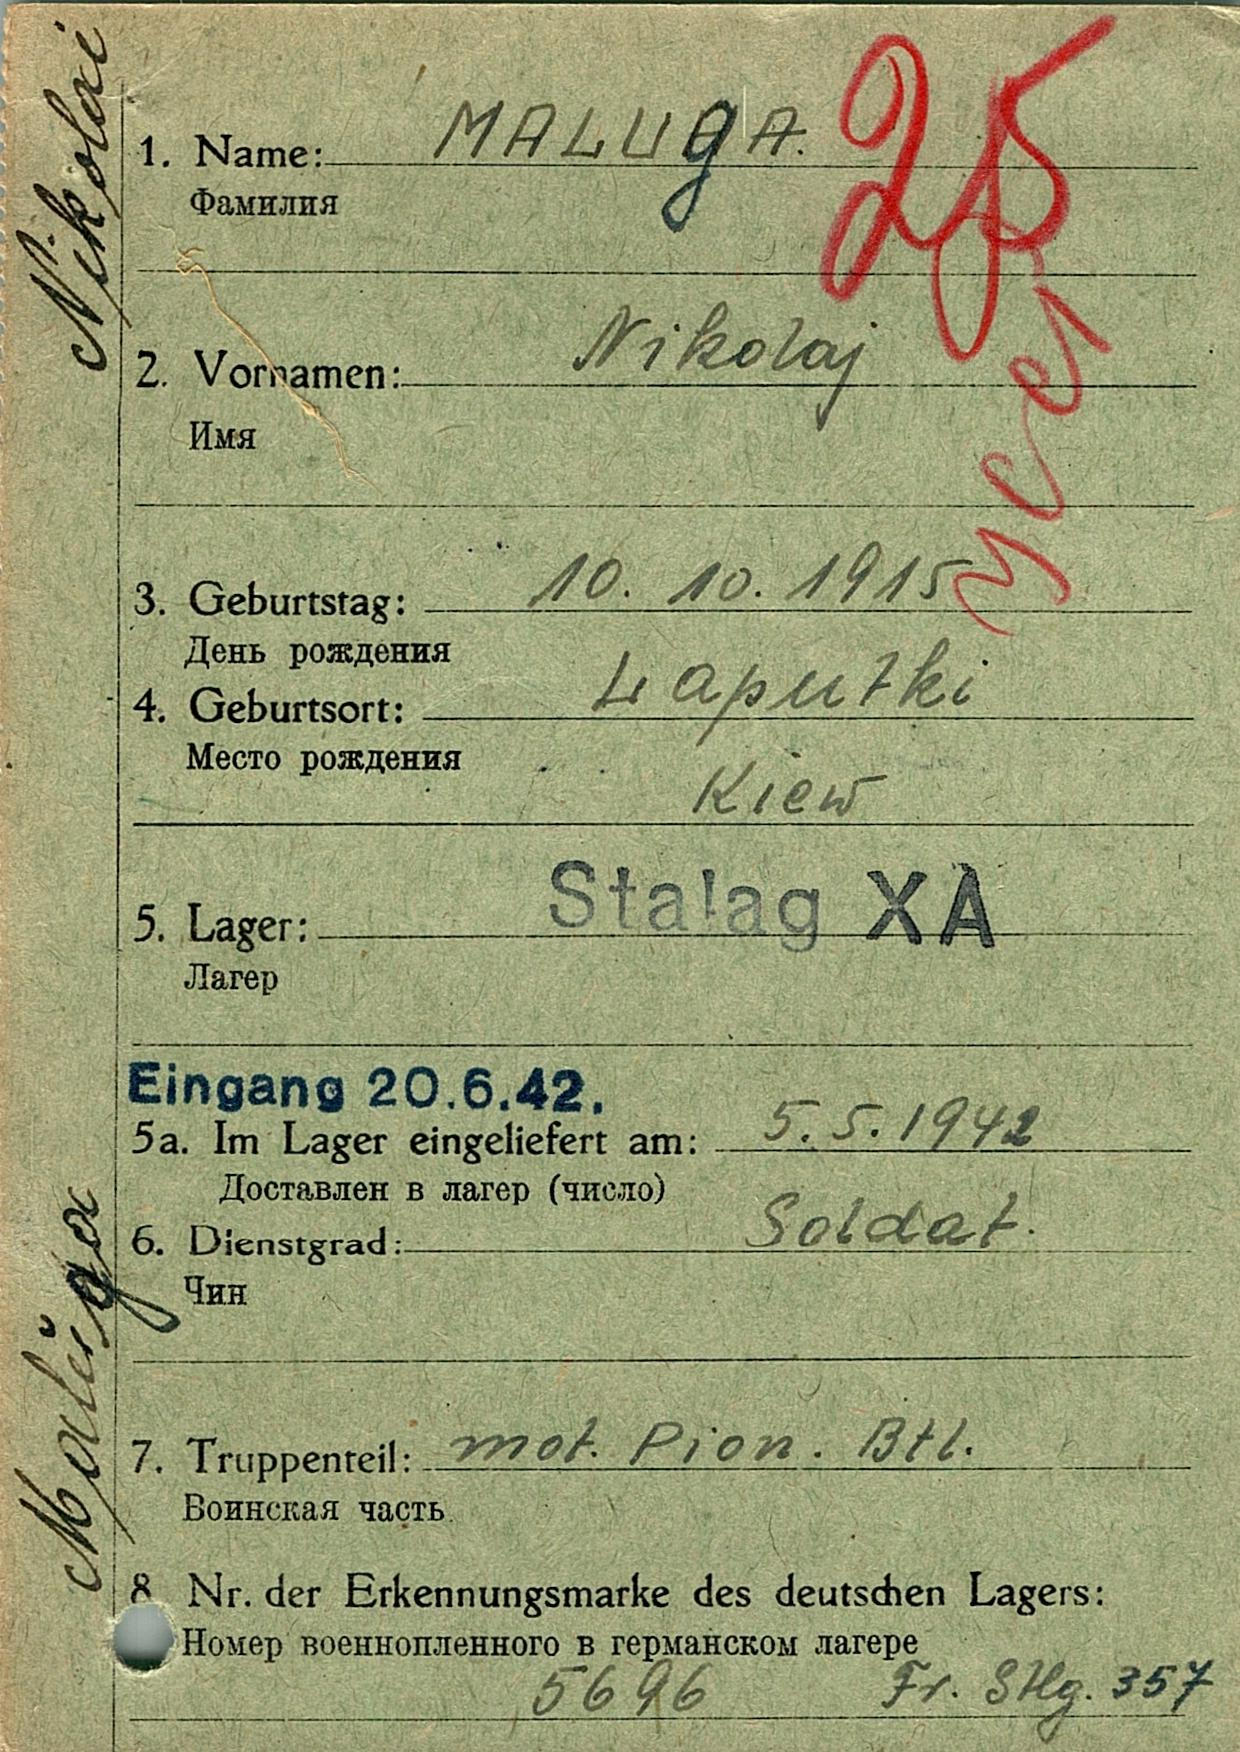 Nikolai
25
1. Name: MALUgA.
Фамилия
2. Vornamen: Nikolaj
Имя
3. Geburtstag: 10. 10. 1915
День рождения
4. Geburtsort: Laputki
Место рождения
Kiew
5. Lager: Stalag XA
Лагер
Eingang 20.6.42.
5a. Im Lager eingeliefert am: 5.5.1942
Доставлен в лагер (число)
6. Dienstgrad: Soldat.
Чин
Maluga
7. Truppenteil: mot. Pion. Btl.
Воинская часть
8 Nr. der Erkennungsmarke des deutschen Lagers:
Номер военнопленного в германском лагере
5696 Fr. Stlg. 357